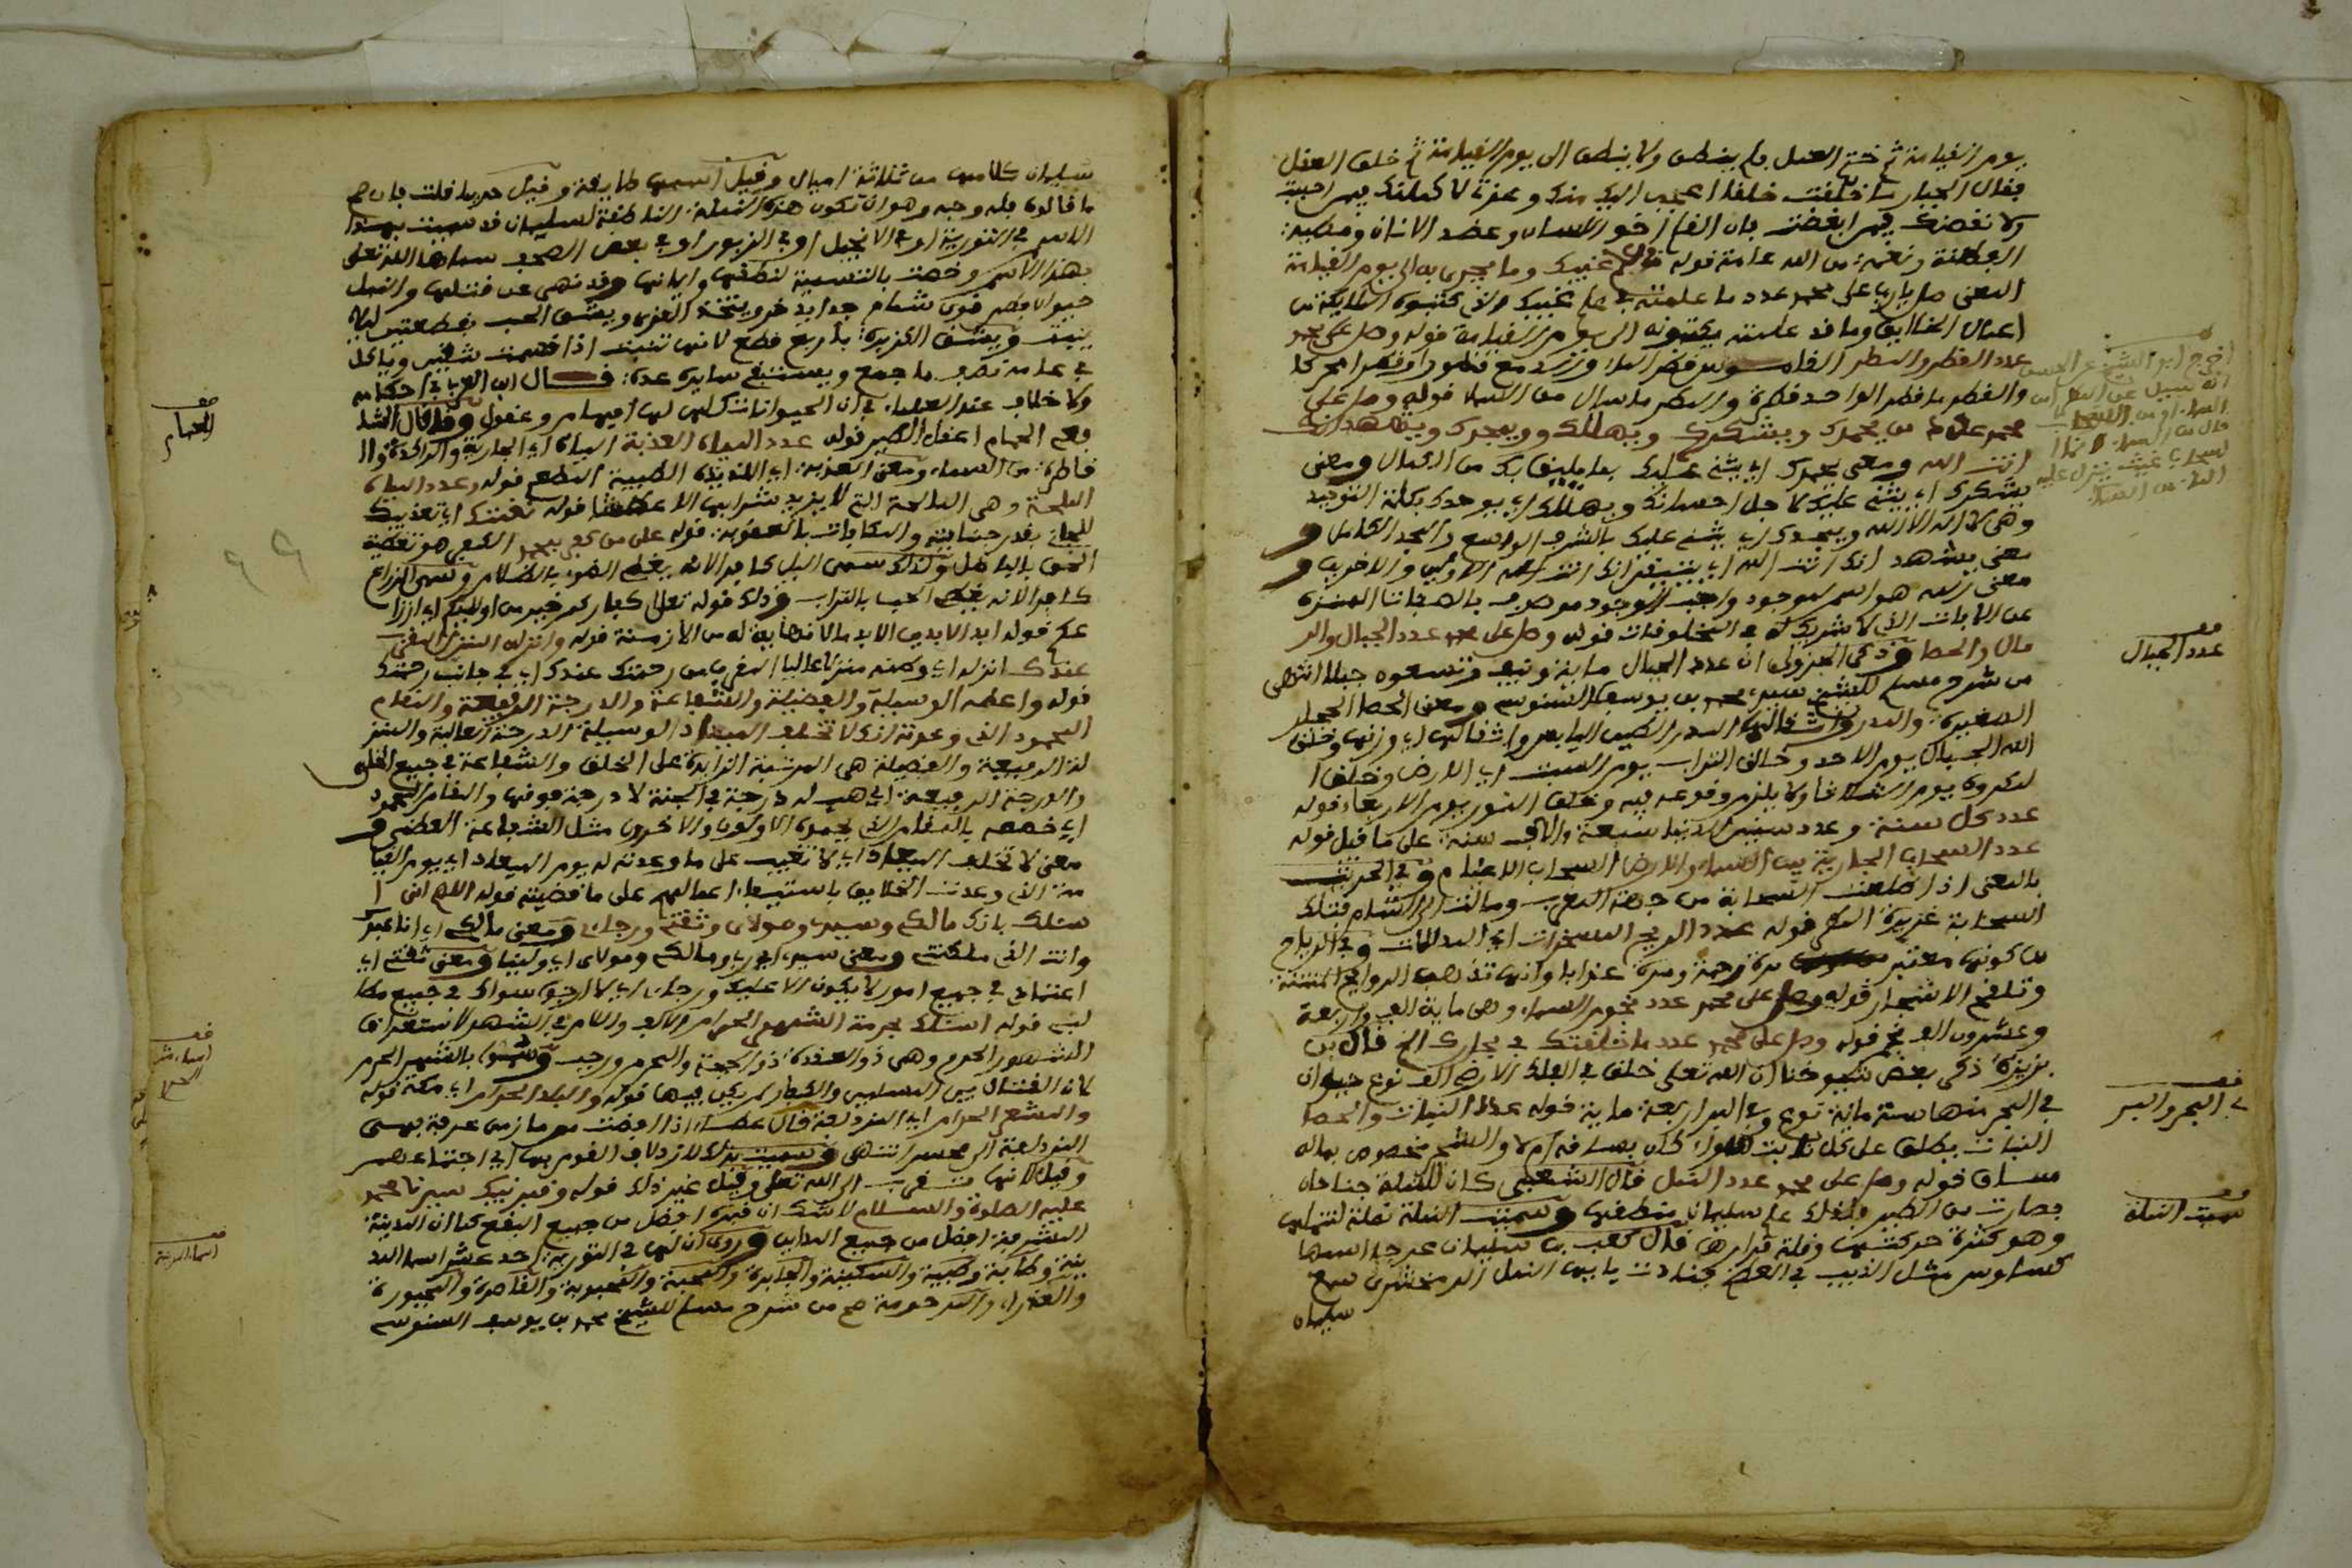 يوم القيامة ثم ختم العقل فلم ينطق ولا ينطق الى يوم القيامة ثم خلق العقل
فقال الجبار ما خلقت خلقا اعجب الي منك وعزتي لاكملنك فيمن احببت
ولا نقصنك فيمن ابغضت
العظمة ونعمة من الله عامة قوله غيبك وما يجري به الى يوم القيامة
المعنى صل يا رب على محمد عدد ما علمته في علم غيبك
اعمال الخلايق وما قد علمت يكتبونه الى يوم القيامة قوله وصل على محمد
عدد القطر والمطر
والقطر ما قطر الواحد قطرة والمطر ما سال من السماء قوله وصل على
محمد عدد من يحمدك ويشكرك ويهللك ويمجدك ويشهد انك
انت الله ومعنى يحمدك اي يثني عليك بما يليق بك من الكمال ومعنى
يشكرك اي يثني عليك لاجل احسانك ويهللك اي يوحدك بكلمة التوحيد
وهي لا اله الا الله ويمجدك اي يثني عليك بالشرف الواسع والمجد الكامل و
معنى يشهد انك انت الله اي يتيقن انك انت اله الاولين والاخرين و
معنى الله هو اسم لموجود واجب الوجود موصوف بالصفات المنزه
عن الافات الذي لا شريك له في المخلوقات قوله وصل على محمد عدد الجبال والر
مال والحصا وذكر الجزولي ان عدد الجبال ماية ونيف وتسعون جبلا انتهى
من شرح مسلم للشيخ سيدي محمد بن يوسف السنوسي ومعنى الحصا الحجار
الصغيرة والمدر واثقالها المدر الطين اليابس واثقالها اي وزنها وخلق
الله الجبال يوم الاحد وخالق التراب يوم السبت اي الارض وخلق ا
لمكروه يوم الثلاثا ولا يلزم وقوعه فيه وخلق النور يوم الاربعاء قوله
عدد كل سنة وعدد سنين الدنيا سبعة والاف سنة على ما قيل قوله
عدد السحاب الجارية بين السماء والارض السحاب الاغمام وفي الحديث
بالمعنى اذا طلعت السحابة من جهة المغرب ومالت الى الشام فتلك
السحابة غزيرة المطر قوله عدد الريح المسخرات اي المذللات وفي الرياح
من كونها مرة رحمة ومرة عذابا وانها تذهب الروايح المنتنة
وتلقح الاشجار قوله وصل على محمد عدد نجوم السماء وهي ماية الف واربعة
وعشرون الف نجم قوله وصل على محمد عدد ما خلقت في بحارك الخ قال بن
بزيزة ذكر بعض شيوخنا ان الله تعالى خلق في الفلك الارضي الف نوع حيوان
في البحر منها ستة ماية نوع وفي البر اربعة ماية قوله عدد النبات والحصا
النبات يطلق على كل نابت سواء كان بساقه ام لا والشجر مخصوص بما له
ساق قوله وصل على محمد عدد النمل قال الشعبي كان للنملة جناحان
فصارت من الطير فلذلك علم سليمان منطقها وسميت النملة نملة لتنملها
وهو كثرة حركتها وقلة قرارها قال كعب بن سليمان عرجا اسمها
طاوس مثل الذيب في العظم فنادت يا ايها النمل الزمخشري سمع
سليمان
فف
عدد الجبال
فف
في البحر والبر
فف
سميت النملة
سليمان كلامها من ثلاثة اميال وقيل اسمها طايعة وقيل حرميا قلت فان صح
ما قالوه فله وجه وهو ان تكون هذه النملة الناطقة لسليمان قد سميت بهذا
الاسم في التورية او في الانجيل او في الزبور او في بعض الصحف سماها الله تعالى
بهذا الاسم وخصت بالتسمية لنطقها وايمانها وقد نهي عن قتلها والنمل
حيوان فطن قوي شمام جدا يدخر ويتخذ القرى ويشق الحب بقطعتين ليلا
ينبت ويشق الكزبرة باربع قطع لانها تنبت اذا قسمت شقين وياكل
في عامه نصف ما جمع ويستبقي سايره عدة قال ابن العربي في احكامه
ولا خلاف عند العلماء في ان الحيوانات كلها لها افهام وعقول وقد قال الشا
فعي الحمام اعقل الطير قوله عدد المياه العذبة المياه اي الجارية والراكدة وال
قاطرة من السماء ومعنى العذبة اي اللذيذة الطيبة المطعم قوله وعدد المياه
الملحة وهي المالحة التي لا يزيد شرابها الا عطشا قوله نقمتك اي تعذيبك
للجاني بقدر جنايته والمكافات بالعقوبة قوله على من كفر بمحمد الكفر هو تغطية
الحق بالباطل وكذلك سمى الليل كافرا لانه يغطي الضوء بالظلام وسمي الزراع
كافرا لانه يغطي الحب بالتراب وذلك قوله تعالى كفاركم خير من اولئكم
قوله ابد الابدين الابد ما لا نهاية له من الازمنة قوله وانزله المنزل المقرب
عندك انزله اي وطنه منزلا عاليا المقرب من رحمتك عندك اي في جانب رحمتك
قوله واعطه الوسيلة والفضيلة والشفاعة والدرجة الرفيعة والمقام
المحمود الذي وعدته انك لا تخلف الميعاد الوسيلة الدرجة العالية والمنز
لة الرفيعة والفضيلة هي المرتبة الزايدة على الخلق والشفاعة في جميع الخلق
والدرجة الرفيعة اي هب له درجة في الجنة لا درجة فوقها والمقام المحمود
اي خصصه بالمقام الذي يحمده الاولون والاخرون مثل الشفاعة العظمى و
معنى لا تخلف الميعاد اي لا تغيب على ما وعدته له يوم الميعاد اي يوم القيا
مة الذي وعدت الخلايق باستيفاء اعمالهم على ما قضيته قوله اللهم اني ا
سئلك بانك مالكي وسيدي ومولاي وثقتي ورجائي ومعنى مالكي اي انا عبدك
وانت الذي ملكتني ومعنى سيدي اي ربي ومالكي ومولاي اي ولينا ومعنى ثقتي اي
اعتمادي في جميع اموري لا يكون الا عليك ورجائي اي لا ارجو سواك في جميع مطا
لبي قوله اسئلك بحرمة الشهر الحرام والالف واللام في الشهر لاستغراق
الاشهور الحرم وهي ذو القعدة ذو الحجة والمحرم ورجب وسموا بالشهر الحرم
لان القتال بين المسلمين والكفار لم يكن فيها قوله والبلد الحرام اي مكة قوله
والمشعر الحرام اي المزدلفة قال عطاء اذا افضت من مازمي عرفة فهي
المزدلفة الى محسر انتهى وسميت بذلك لازدلاف القوم بها اي اجتماعهم
وقيل لانها تقرب الى الله تعلى وقيل غير ذلك قوله وقبر نبيك سيدنا محمد
عليه الصلوة والسلام لا شك ان قبره افضل من جميع البقع كما ان المدينة
المشرفة افضل من جميع المداين وروي ان لها في التورية احد عشر اسما المد
ينة وطابة وطيبة والسكينة والجابرة والمحبة والمحبوبة والقاصمة والمجبورة
والعذراء والمرحومة صح من شرح مسلم للشيخ محمد بن يوسف السنوسي
فف
الحمام
فف
اسماء المدينة